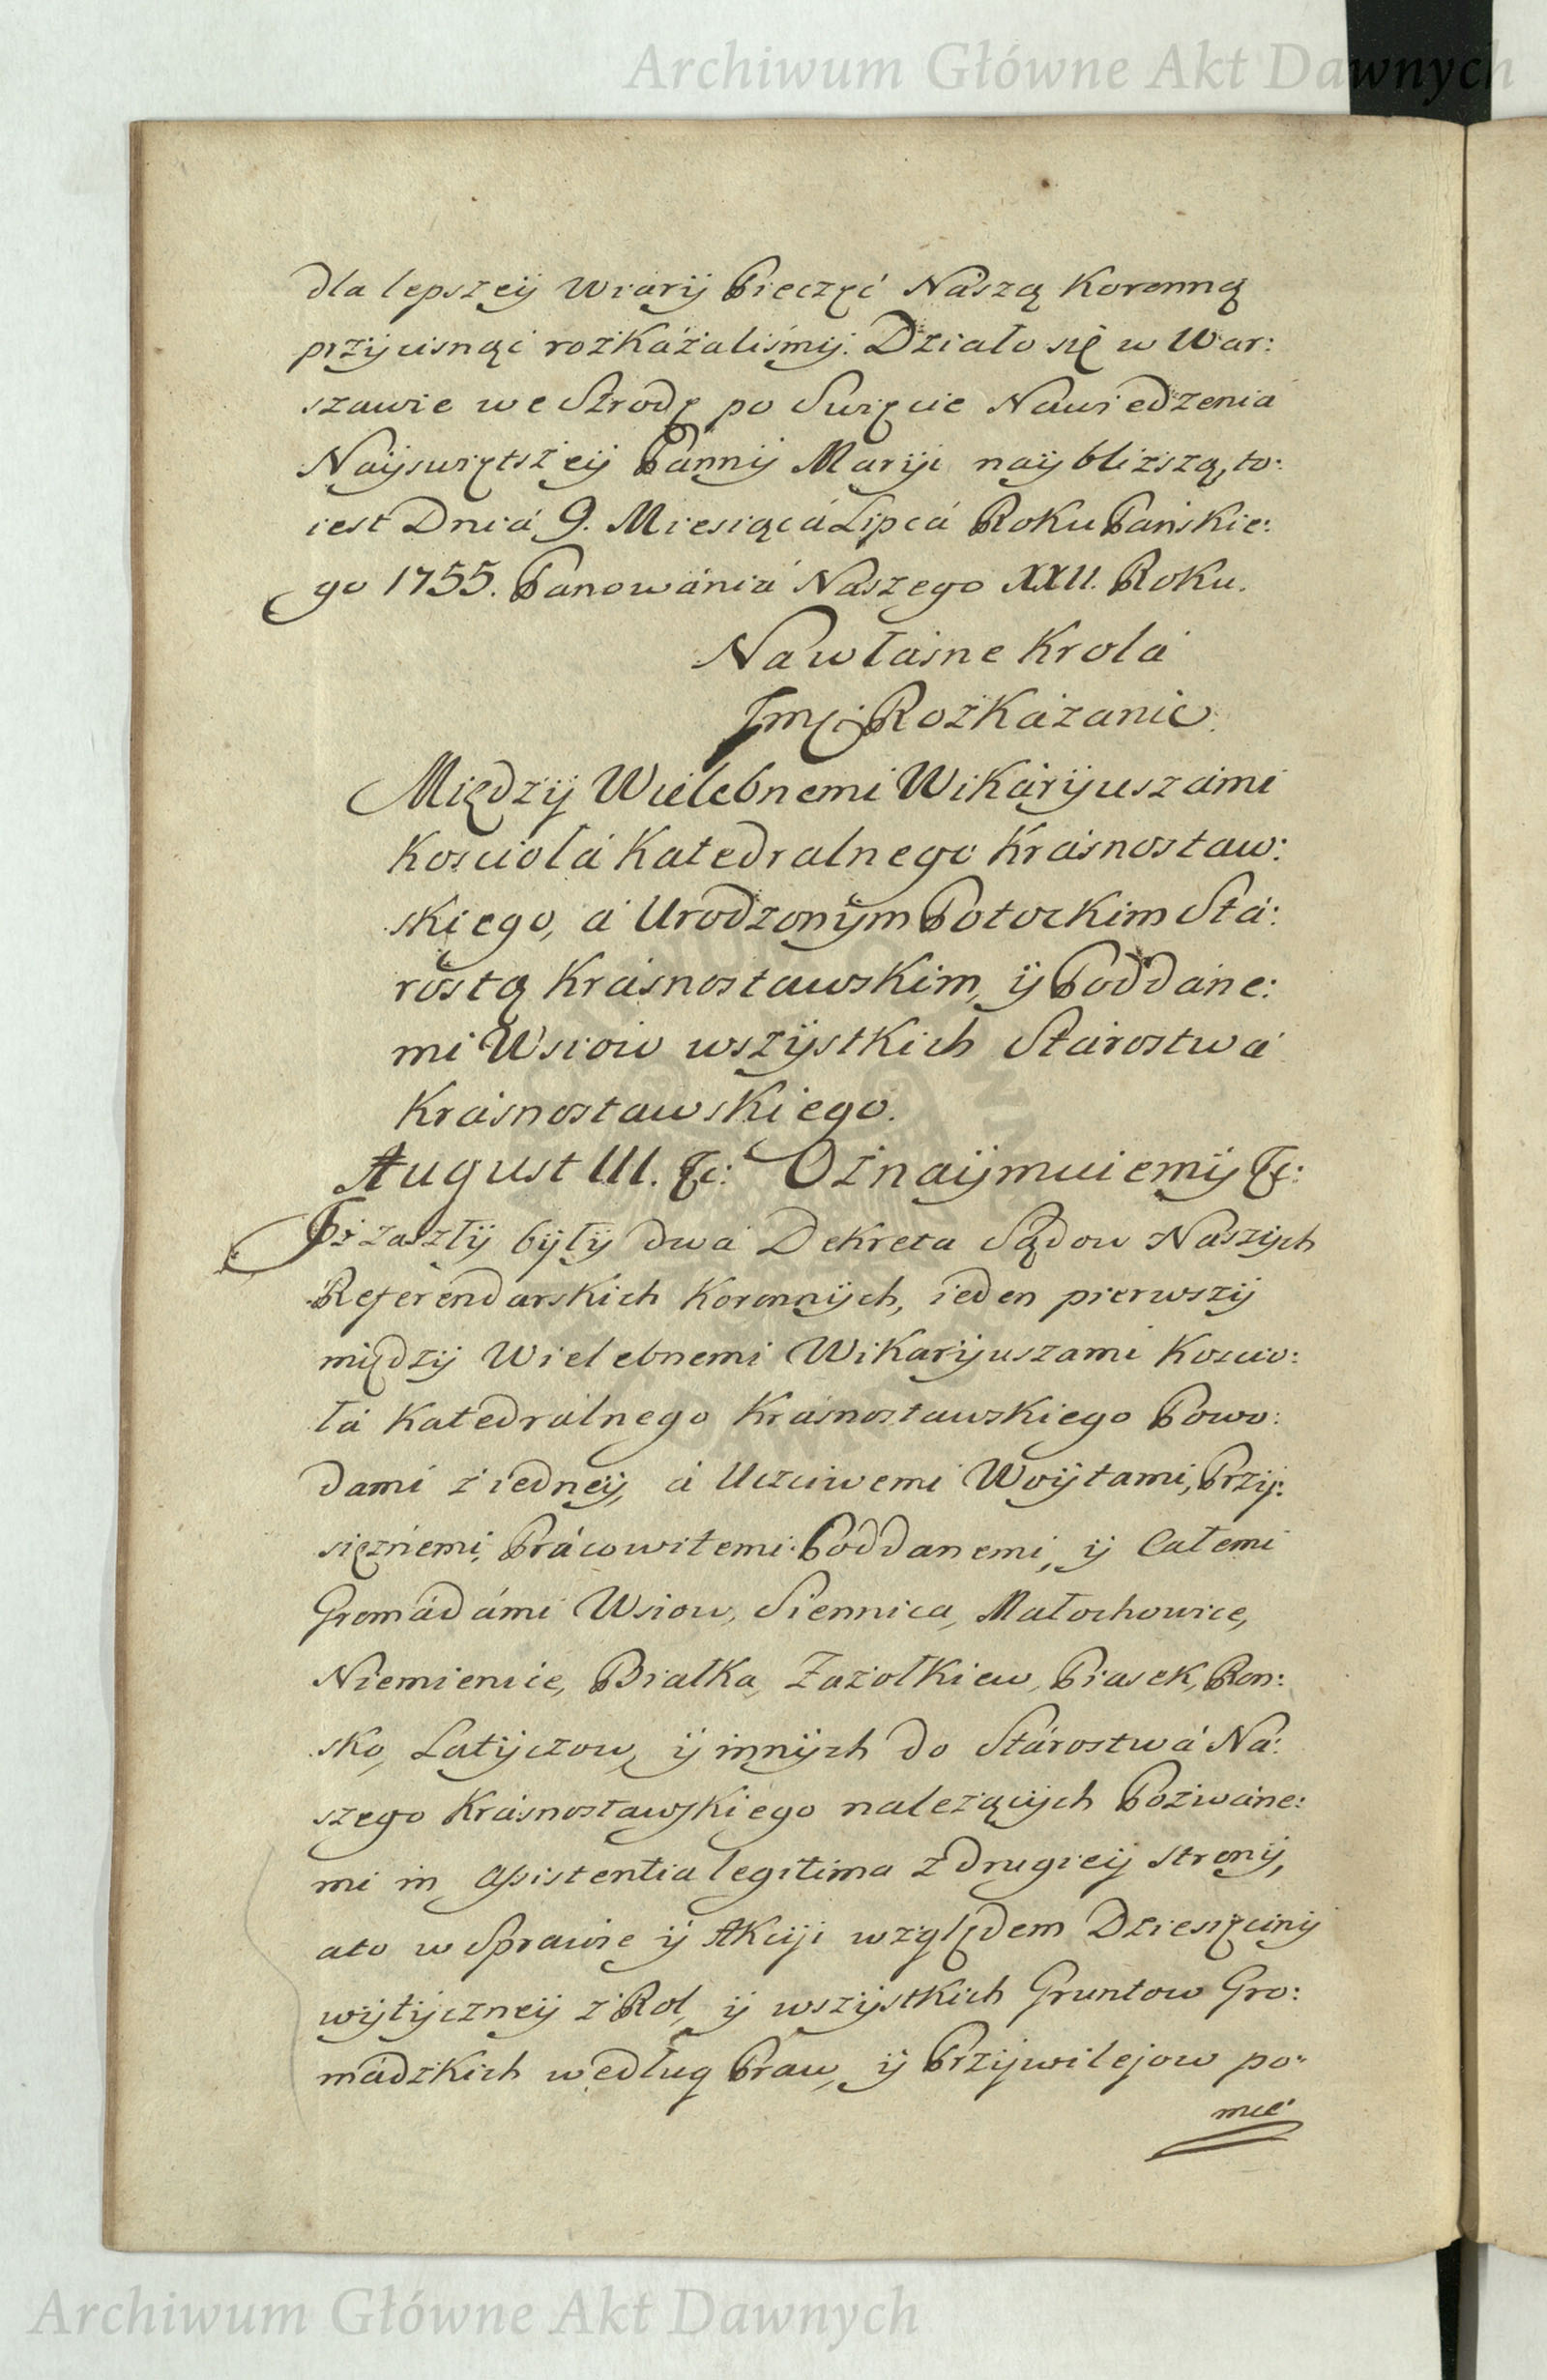 Archiwum Główne Akt Dawnych
dla lepszeij Wiarij Pieczęć Nászą Koronną
przijcisnąć rozkázaliśmij. Działo się w War:
szawie we Strodę po Swięcie Nawiedzenia
Naijswiętszeij Pannij Mariji naijbliższą, to:
iest Dniá 9. Miesiącá Lipcá Roku Pańskie:
go 1755. Panowániá Naszego XXII. Roku.
Na właśne Krolá
Jmci Rozkázanie.
Międzij Wielebnemi Wikárijuszámi
Kosciołá Katedralnego Krásnostaw:
skiego, á Urodzonijm Potockim Stá:
rostą Krásnostawskim, ij Poddáne:
mi Wsiow wszijstkich Stárostwá
Krásnostawskiego.
August III. &c: Oznaijmuiemij &c:
Iż zaszłij bijłij dwá Dekreta Sądow Naszijch
Referendarskich Koronnijch, ieden pierwszij
międzij Wielebnemi Wikarijuszami Koscio:
łá Katedrálnego Krásnostawskiego Powo:
dami z iedneij, á Uczciwemi Woijtami, Przij:
siężnemi, Prácowitemi Poddanemi, ij Całemi
Gromádámi Wsiow, Siennica, Małochowice,
Niemienice, Białka, Zażołkiew, Piasek, Ron:
sko, Latijczow, ij innijch do Stárostwá Ná:
szego Krásnostawskiego należącijch Pozwáne:
mi in Assistentia legitima z drugieij stronij,
ato w Sprawie ij Akciji względem Dziesięcinij
wijtijczneij z Rol, ij wszijstkich Gruntow Gro:
mádzkich według Praw, ij Przijwilejow po:
mie
Archiwum Główne Akt Dawnych